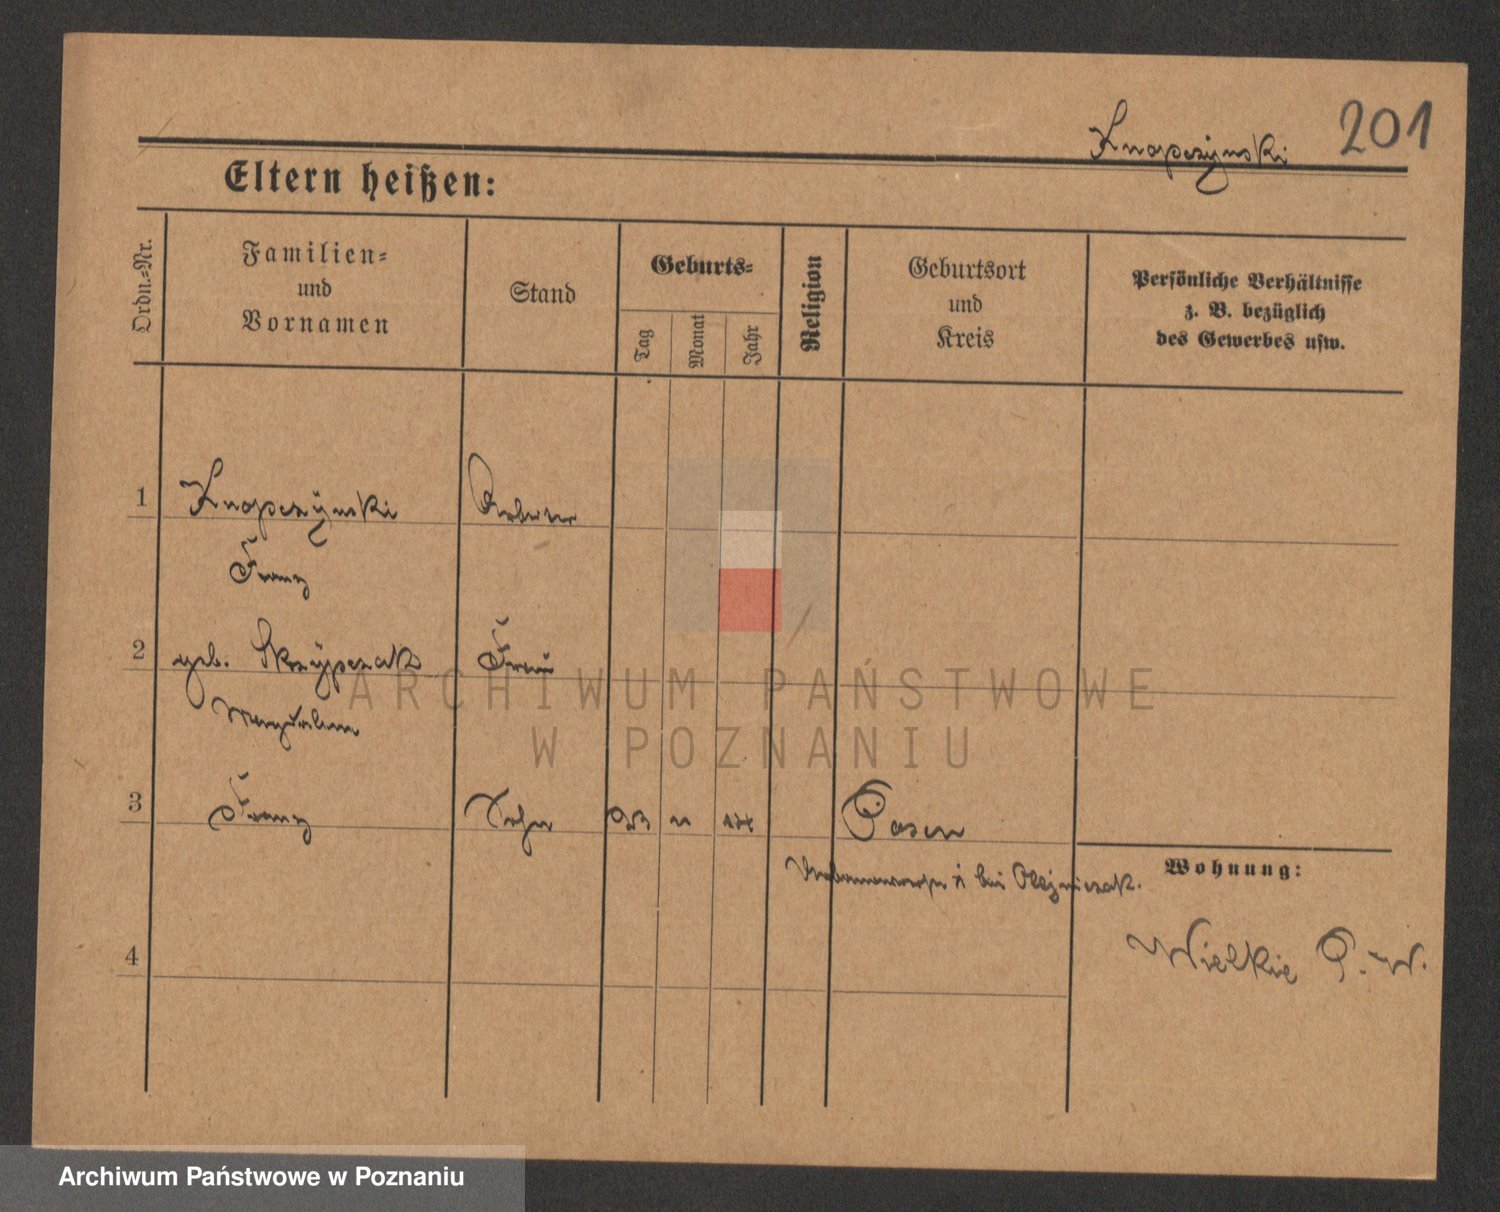 Knapczÿnski
201
Eltern heißen:
Ordn.-Nr.
Familien-
und
Vornamen
Stand
Geburts-
Tag
Monat
Jahr
Religion
Geburtsort
und
Kreis
Persönliche Verhältnisse
z. B. bezüglich
des Gewerbes usw.
1 Knapczÿnski Arbeiter
Franz
2 geb. Skrzÿpczak Frau
Magdalena
3 Franz Sohn Posen
bei Olejniczak.
Wohnung:
4
Wielkie P. W.
ARCHIWUM PAŃSTWOWE
W POZNANIU
Archiwum Państwowe w Poznaniu